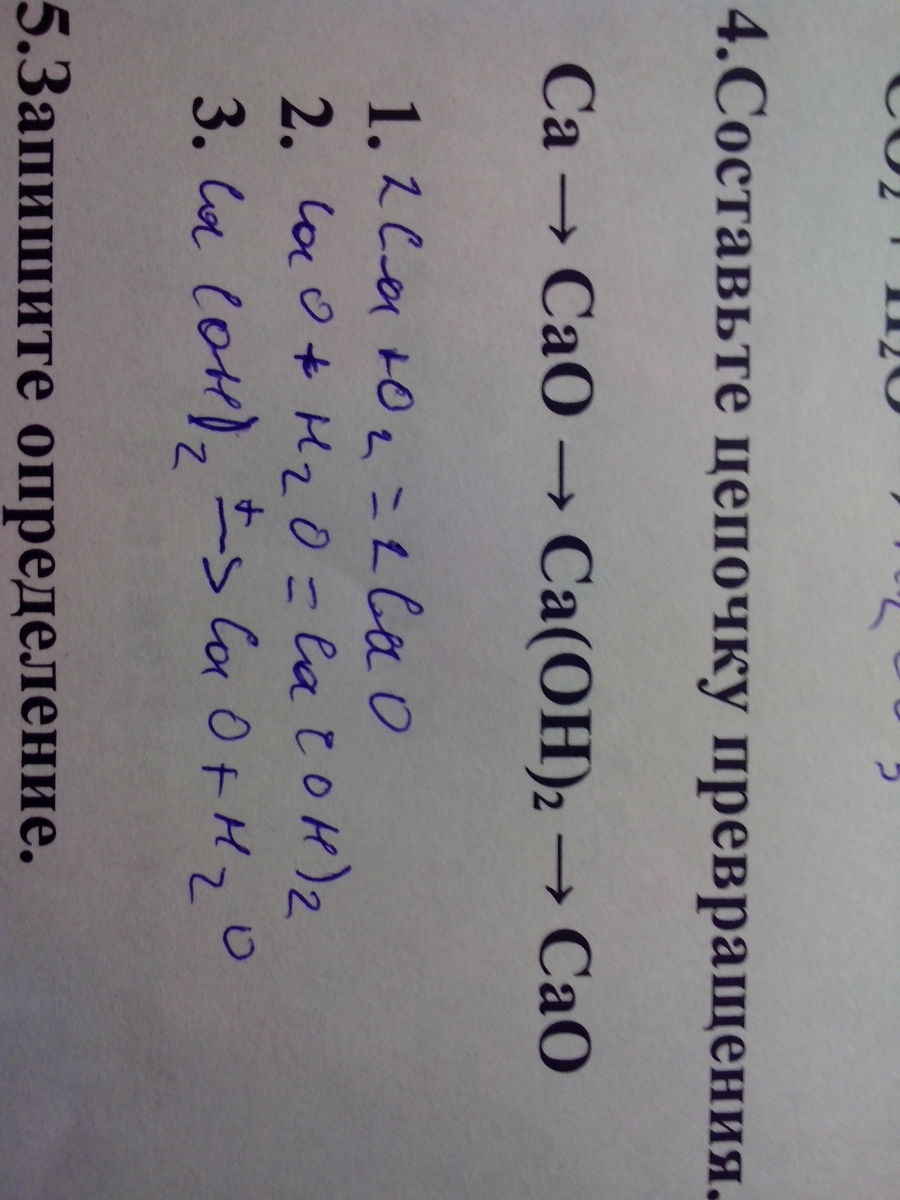 CO₂ + H₂O
4.Составьте цепочку превращения.
Ca → CaO → Ca(OH)₂ → CaO
1. 2Ca+O₂=2CaO
2. CaO+H₂O=Ca(OH)₂
3. Ca(OH)₂ t→ CaO+H₂O
5.Запишите определение.